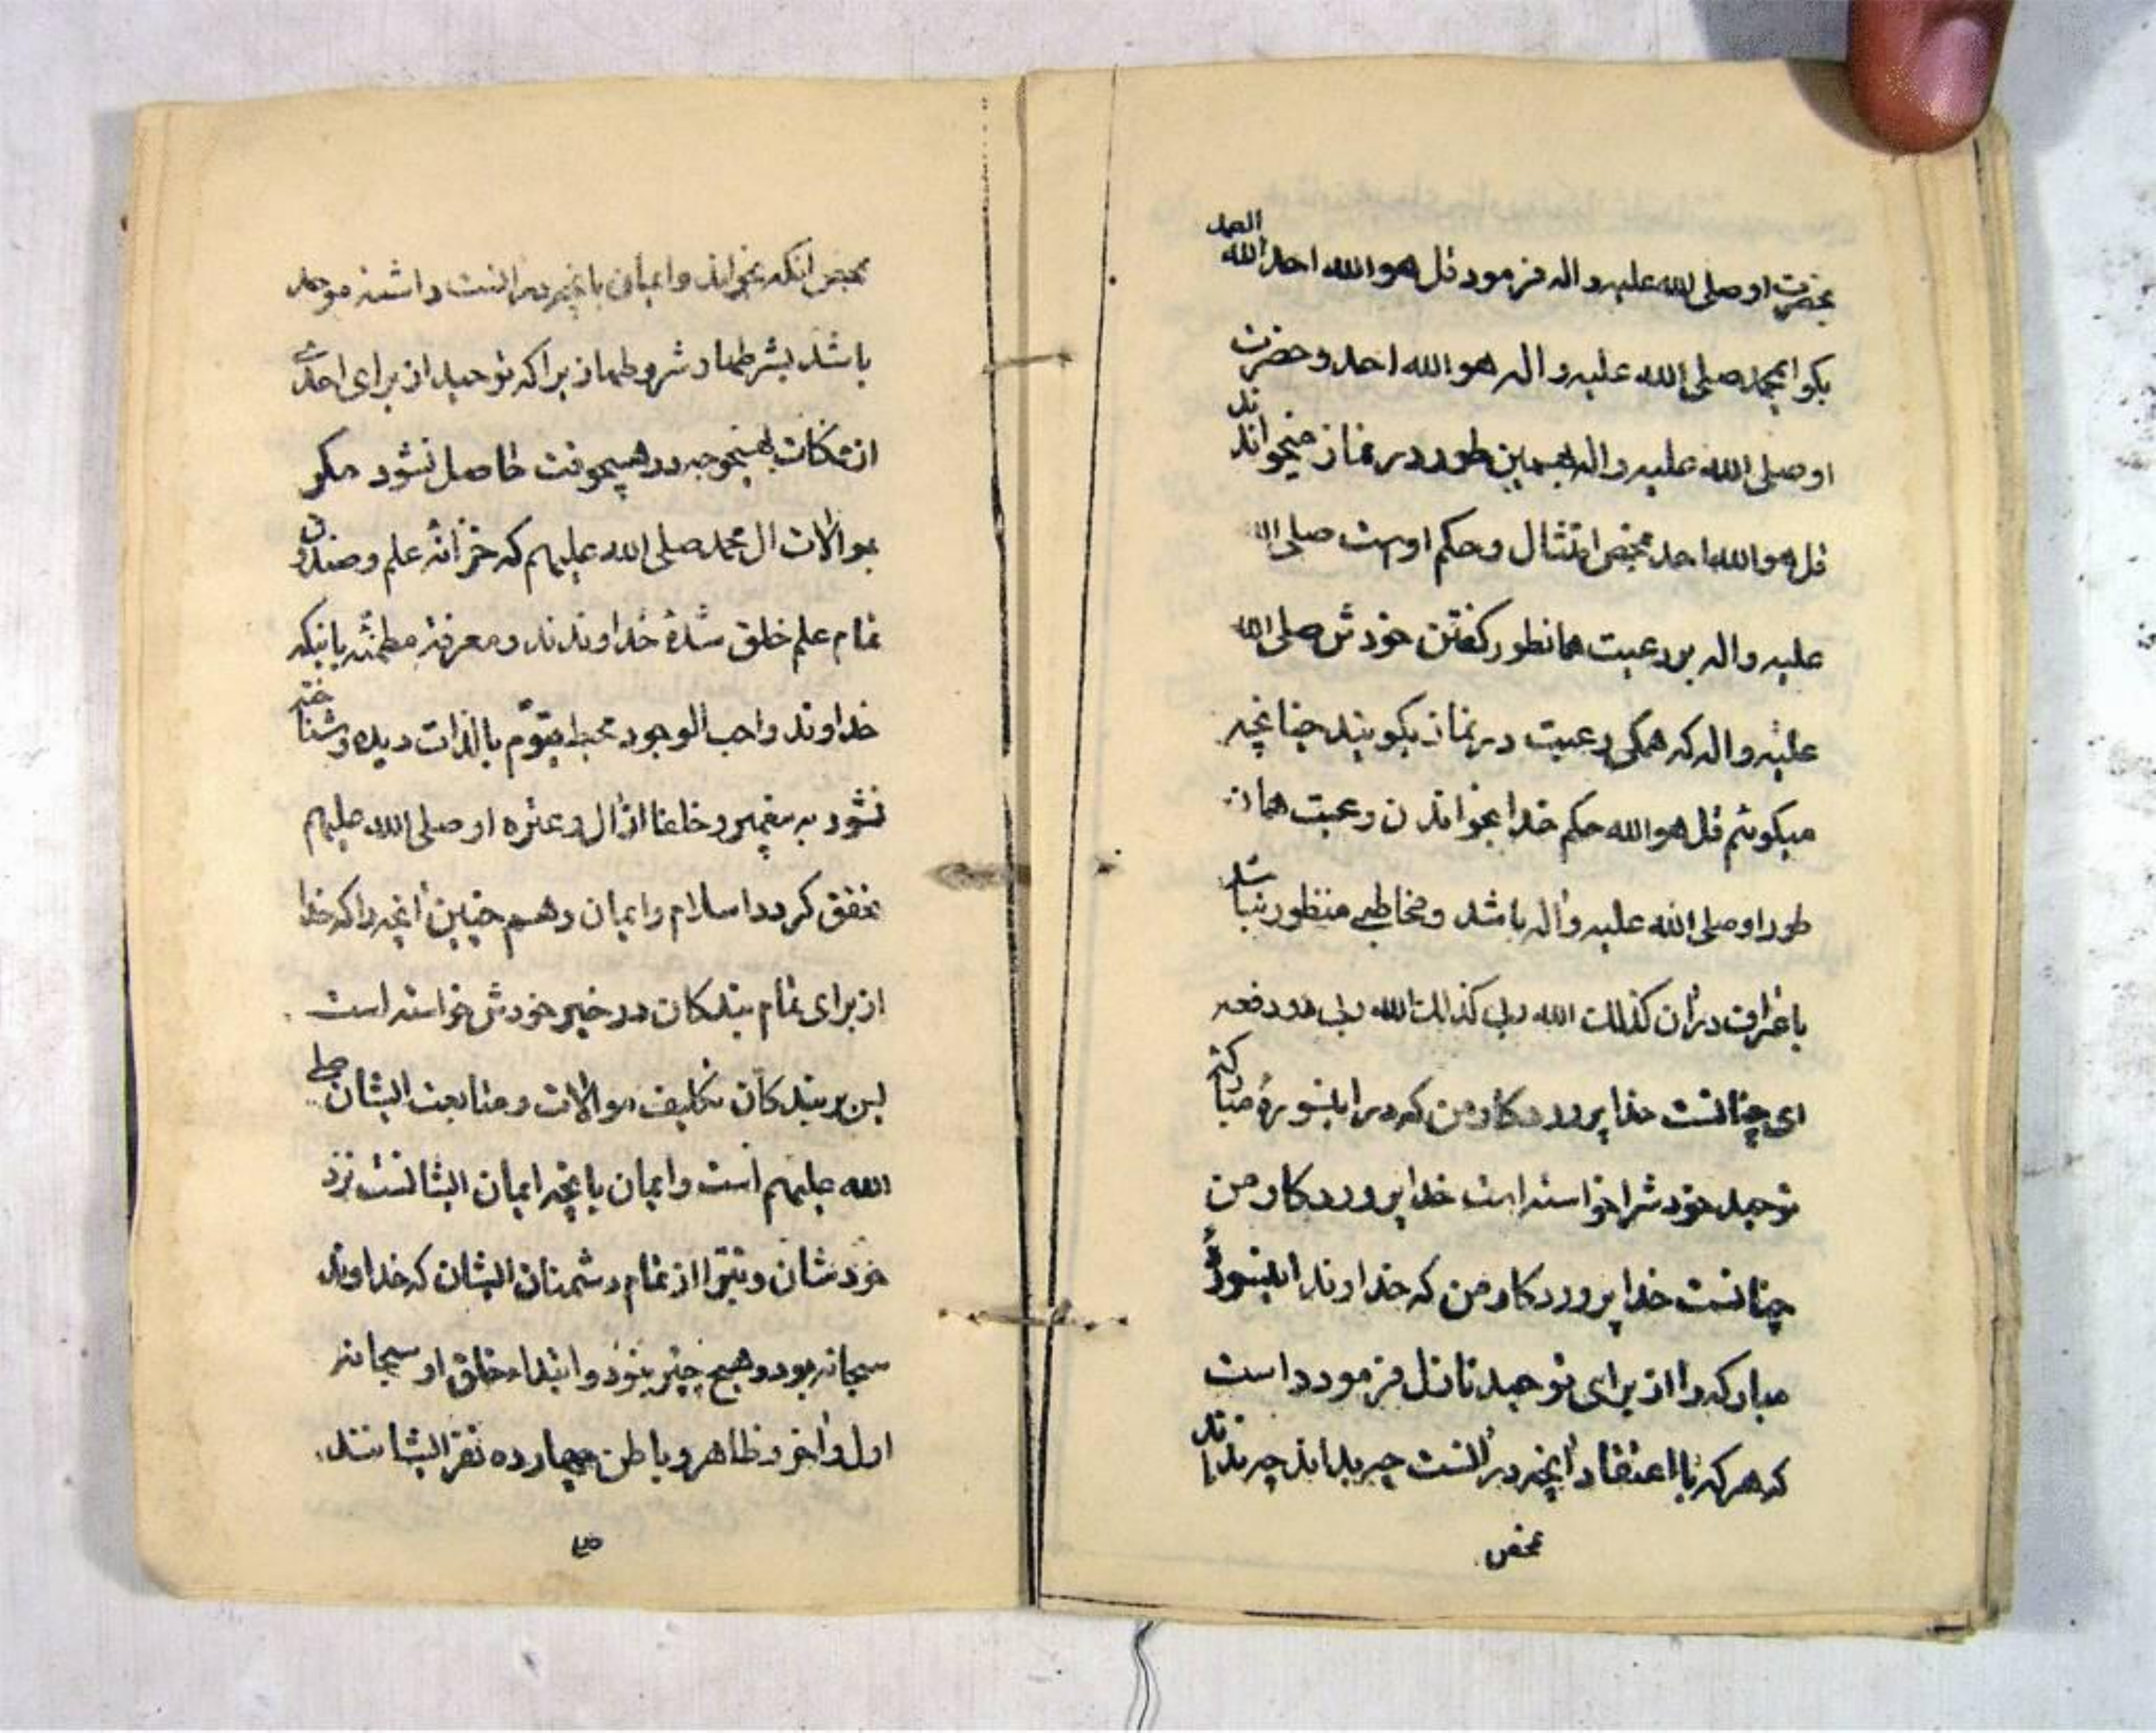 بحضرت او صلی الله علیه و اله فرمود قل هو الله احد الله الصمد
بکو ایمحمد صلی الله علیه و اله هو الله احد و حضرت
او صلی الله علیه و اله بهمین طور در نماز میخواندند
قل هو الله احد محض امتثال و حکم اوست صلی الله
علیه و اله بر رعیت همانطور کفتن خودش صلی الله
علیه و اله که همکی رعیت در نماز بکویند چنانچه
میکوئیم قل هو الله حکم خدا بخواندن رعیت همان
طور او صلی الله علیه و اله باشد و مخاطبی منظور نباشد
در ان کذلک الله ربی کذلک الله ربی دو دفعه
ای چنانست خدا پروردکار من که در اینسورهٔ مبارکه
توحید خودش را خواسته است خدا پروردکار من
چنانست خدا پروردکار من که خداوند اینسورهٔ
مبارکه را از برای توحید نازل فرموده است
که هر که با اعتقاد انچه در انست چه بداند چه نداند
محض
محض انکه بخواند و ایمان بانچه در انست داشته موحد
باشد بشرطها و شروطها زیرا که توحید از برای احدی
از ممکنات بهیچوجه در هیچوقت حاصل نشود مکر
بموالات ال محمد صلی الله علیهم که خزانه علم و صندوق
تمام علم خلق شدهٔ خداوندند و معرفة مطمئنه باینکه
خداوند واجب الوجود محیط قیوم بالذات دیده و شناخته
نشود به پیغمبر و خلفا از ال و عترة او صلی الله علیهم
محقق کردد اسلام و ایمان و هم چنین انچه را که خدا
از برای تمام بندکان در خیر خودش خواسته است
پس بر بندکان تکلیف موالات و متابعت ایشان صلی
الله علیهم است و ایمان بانچه ایمان ایشانست نزد
خودشان و تبرا از تمام دشمنان ایشان که خداوند
سبحانه بود و هیچ چیز نبود و ابتداء خلق او سبحانه
اول و اخر و ظاهر و باطن چهارده نفر ایشانند